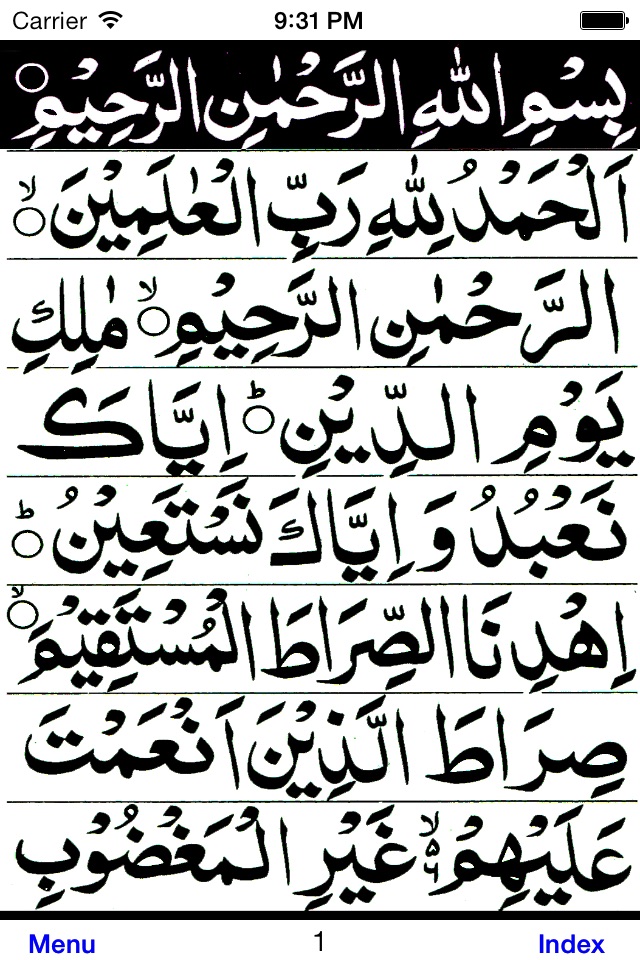 Carrier 9:31 PM
بِسْمِ اللهِ الرَّحْمٰنِ الرَّحِيْمِ ○
اَلْحَمْدُ لِلّٰهِ رَبِّ الْعٰلَمِيْنَ ○ۙ
الرَّحْمٰنِ الرَّحِيْمِ ○ۙ مٰلِكِ
يَوْمِ الدِّيْنِ ○ؕ اِيَّاكَ
نَعْبُدُ وَ اِيَّاكَ نَسْتَعِيْنُ ○ؕ
اِهْدِنَا الصِّرَاطَ الْمُسْتَقِيْمَ ○ۙ
صِرَاطَ الَّذِيْنَ اَنْعَمْتَ
عَلَيْهِمْ ۙ۵ ۶ غَيْرِ الْمَغْضُوْبِ
Menu 1 Index